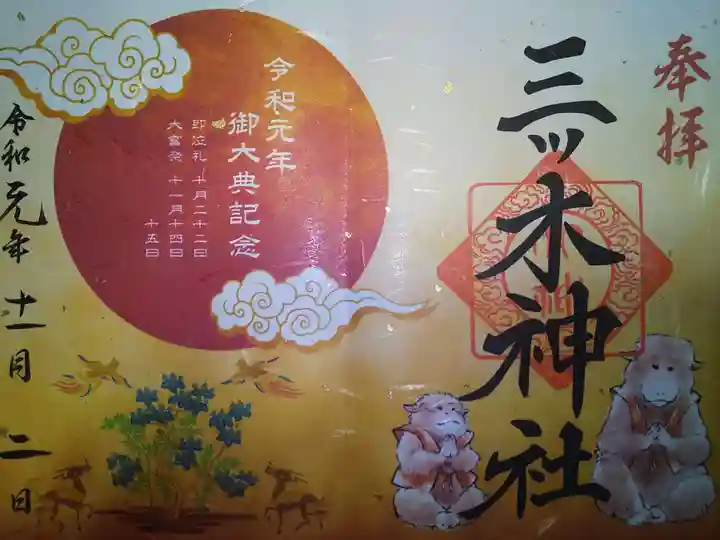 奉拝
三ッ木神社
令和元年
御大典記念
即位礼 十月二十二日
大嘗祭 十一月十四日
十五日
令和元年 十一月 二日